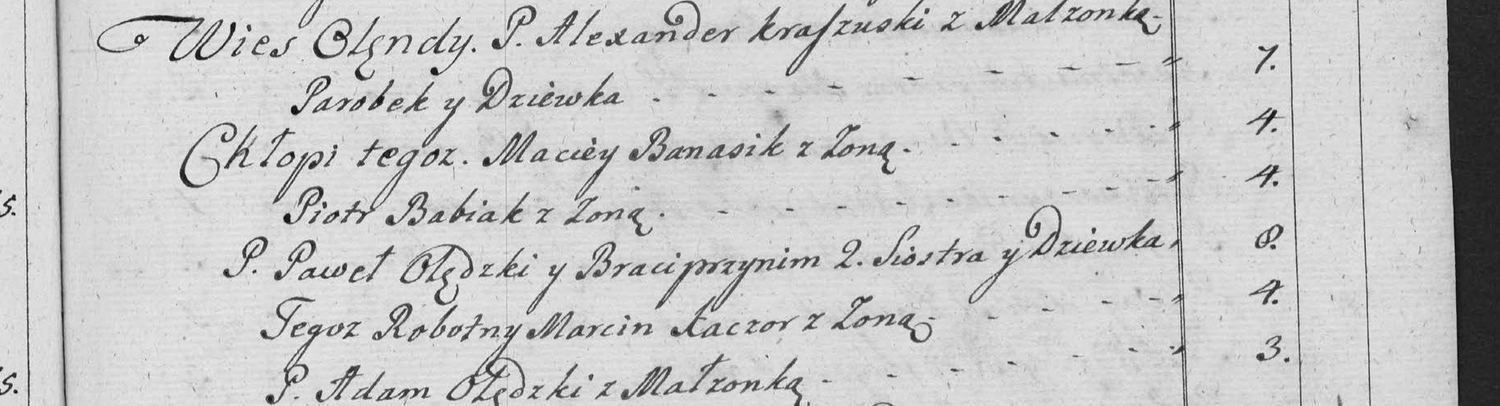 Wies Olęndy. P. Alexander kraszuski z Małzonką
Parobek y Dziéwka - - - - - - - - " 7.
Chłopi tegoz. Maciéy Banasik z Zoną. - - - - - " 4.
Piotr Babiak z Zoną. - - - - - - - - " 4.
P. Paweł Olędzki y Braci przynim 2. Siostra y Dziewka " 8.
5.
Tegoz Robotny Marcin Kaczor z Zoną - - - - " 4.
P. Adam Olędzki z Małzonką - - - - - - " 3.
5.